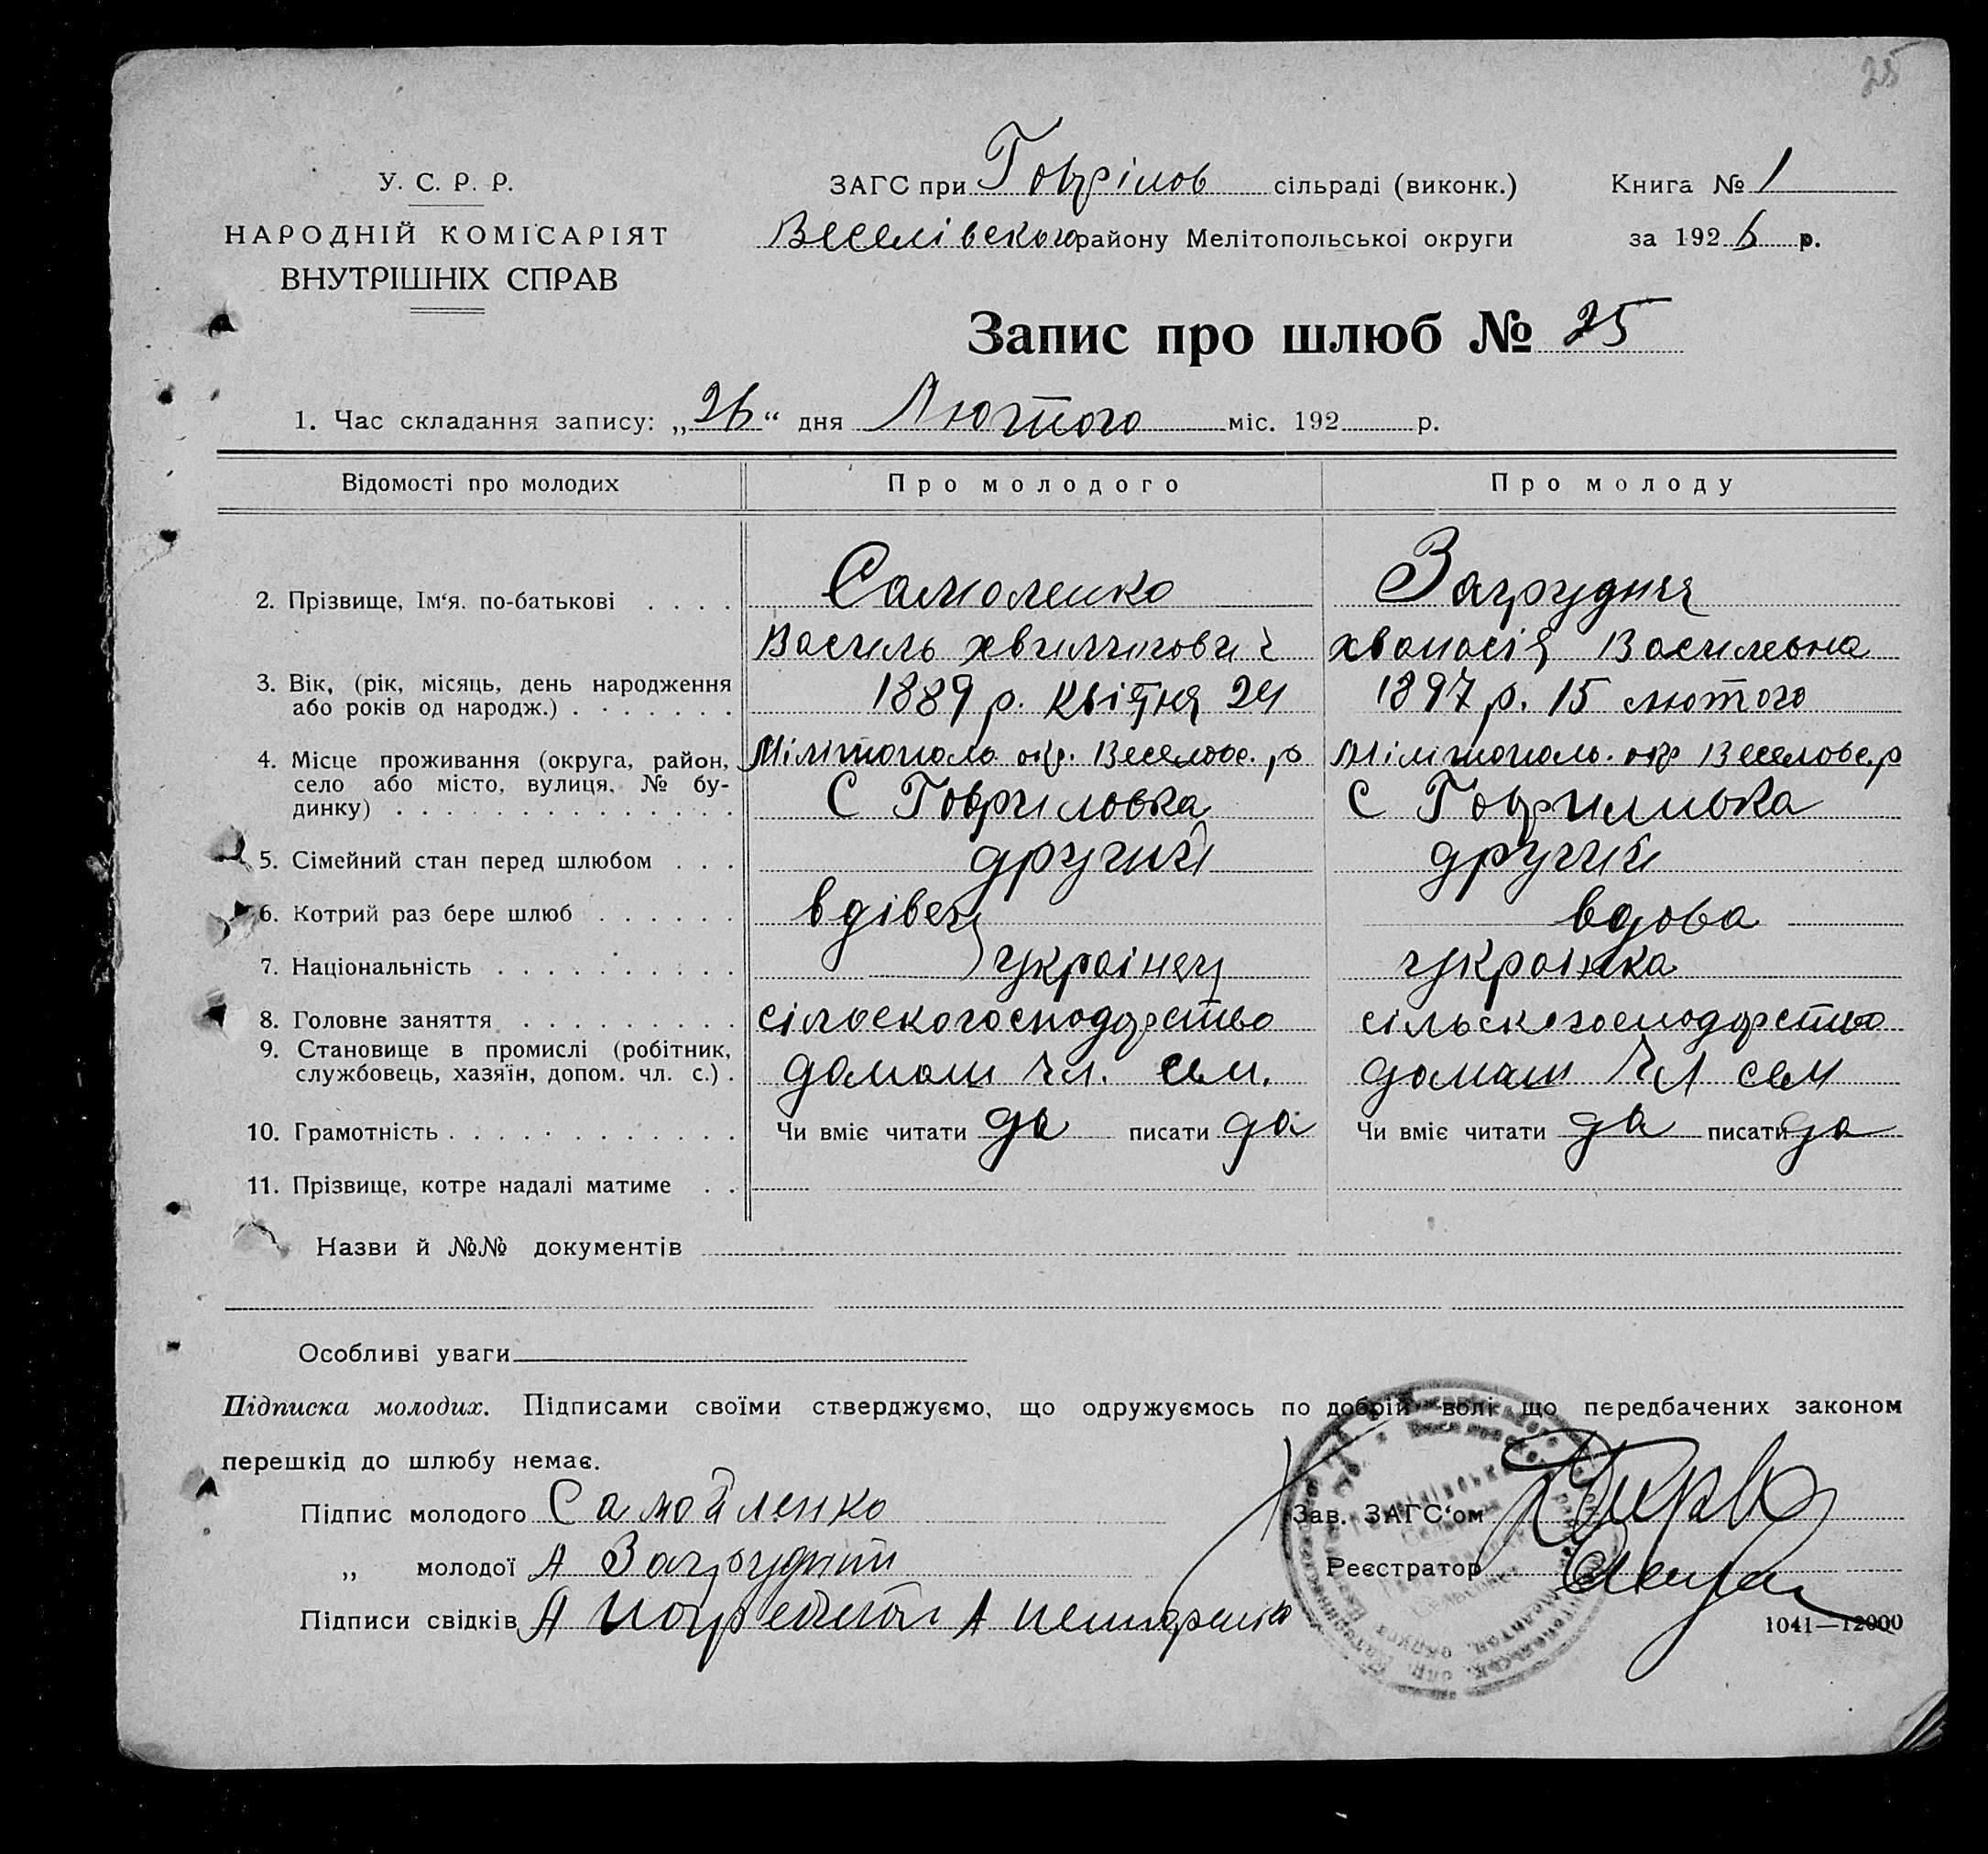 25
У. С. Р. Р.
НАРОДНІЙ КОМІСАРІЯТ
ВНУТРІШНІХ СПРАВ
ЗАГС при Гаврілов сільраді (виконк.)
Веселівського району Мелітопольської округи
Книга № 1
за 1926 р.
Запис про шлюб № 25
1. Час складання запису: „26“ дня Лютого міс. 192 р.
Відомості про молодих
Про молодого
Про молоду
2. Прізвище, Ім‘я. по-батькові . . . .
Самоленко
Василь хвилипович
Загрудня
хванасія Васильвна
3. Вік, (рік, місяць, день народження
або років од народж.) . . . . . . .
1889 р. Квітня 24
1897 р. 15 лютого
4. Місце проживання (округа, район,
село або місто, вулиця, № бу-
динку) . . . . . . . . . . . . . . .
Мілітополь окр. Веселовс. р
С Гавриловка
Мілітополь. окр Веселовс. р
С Гавриливка
5. Сімейний стан перед шлюбом . . .
другий
другий
6. Котрий раз бере шлюб . . . . . .
вдівец
вдова
7. Національність . . . . . . . . . .
украінец
украінка
8. Головне заняття . . . . . . . . .
сільскогосподарство
сільскогосподарство
9. Становище в промислі (робітник,
службовець, хазяїн, допом. чл. с.) .
домаш чл. сем.
домаш чл сем
10. Грамотність . . . . . . . . . . . .
Чи вміє читати да писати да
Чи вміє читати да писати да
11. Прізвище, котре надалі матиме . .
Назви й №№ документів
Особливі уваги
Підписка молодих. Підписами своїми стверджуємо, що одружуємось по добрій волі що передбачених законом
перешкід до шлюбу немає.
Підпис молодого Самойленко
„ молодої А
Підписи свідків А А
Зав. ЗАГС‘ом
Реєстратор
1041—12000